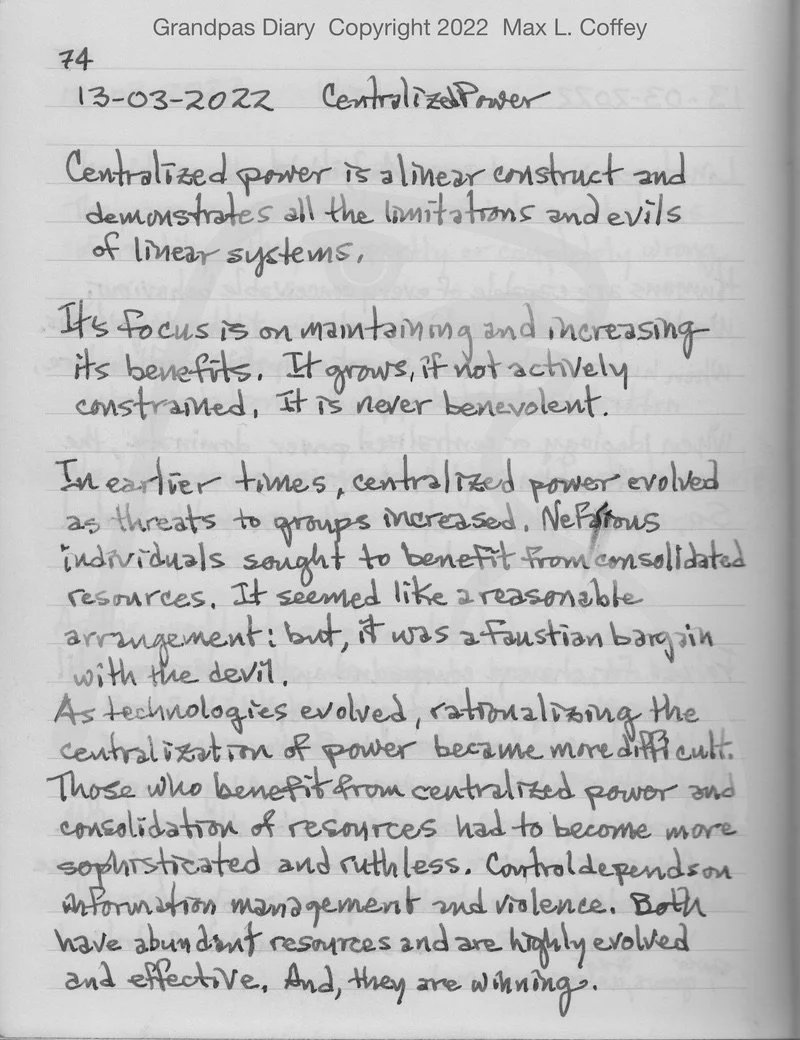 Grandpas Diary Copyright 2022 Max L. Coffey
74
13-03-2022 Centralized Power
Centralized power is a linear construct and
demonstrates all the limitations and evils
of linear systems.
It's focus is on maintaining and increasing
its benefits. It grows, if not actively
constrained. It is never benevolent.
In earlier times, centralized power evolved
as threats to groups increased. Nefarious
individuals sought to benefit from consolidated
resources. It seemed like a reasonable
arrangement: but, it was a faustian bargain
with the devil.
As technologies evolved, rationalizing the
centralization of power became more difficult.
Those who benefit from centralized power and
consolidation of resources had to become more
sophisticated and ruthless. Control depends on
information management and violence. Both
have abundant resources and are highly evolved
and effective. And, they are winning.